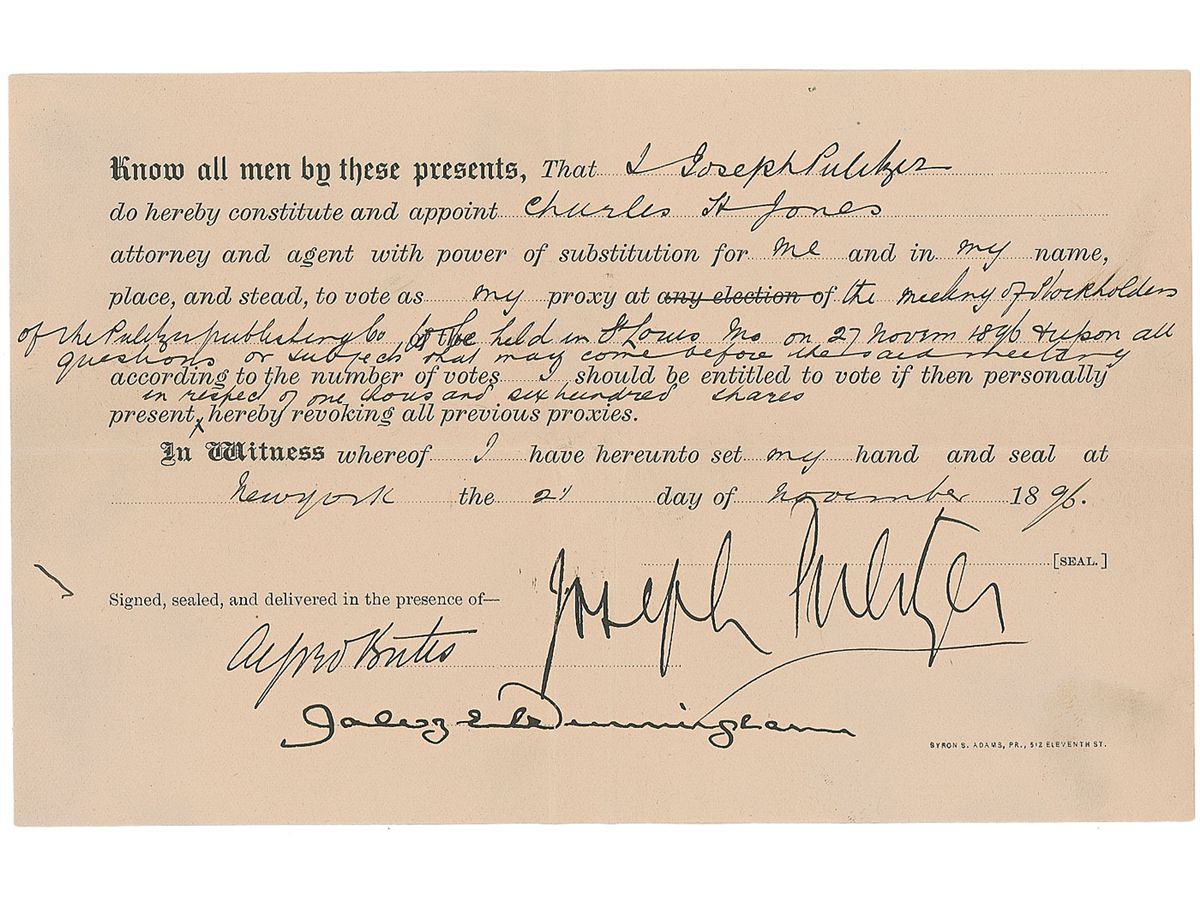 Know all men by these presents, That I Joseph Pulitzer
do hereby constitute and appoint Charles H Jones
attorney and agent with power of substitution for me and in my name,
place, and stead, to vote as my proxy at any election of the meeting of Stockholders
of the Pulitzer publishing Co to be held in St Louis Mo on 27 Novem 1896 & upon all
questions or subjects that may come before the said meeting
according to the number of votes I should be entitled to vote if then personally
in respect of one thous and six hundred shares
present, hereby revoking all previous proxies.
In Witness whereof I have hereunto set my hand and seal at
New York the 21 day of November 1896.
[SEAL.]
Joseph Pulitzer
Signed, sealed, and delivered in the presence of—
Alfred Butes
Cunningham
BYRON S. ADAMS, PR., 512 ELEVENTH ST.